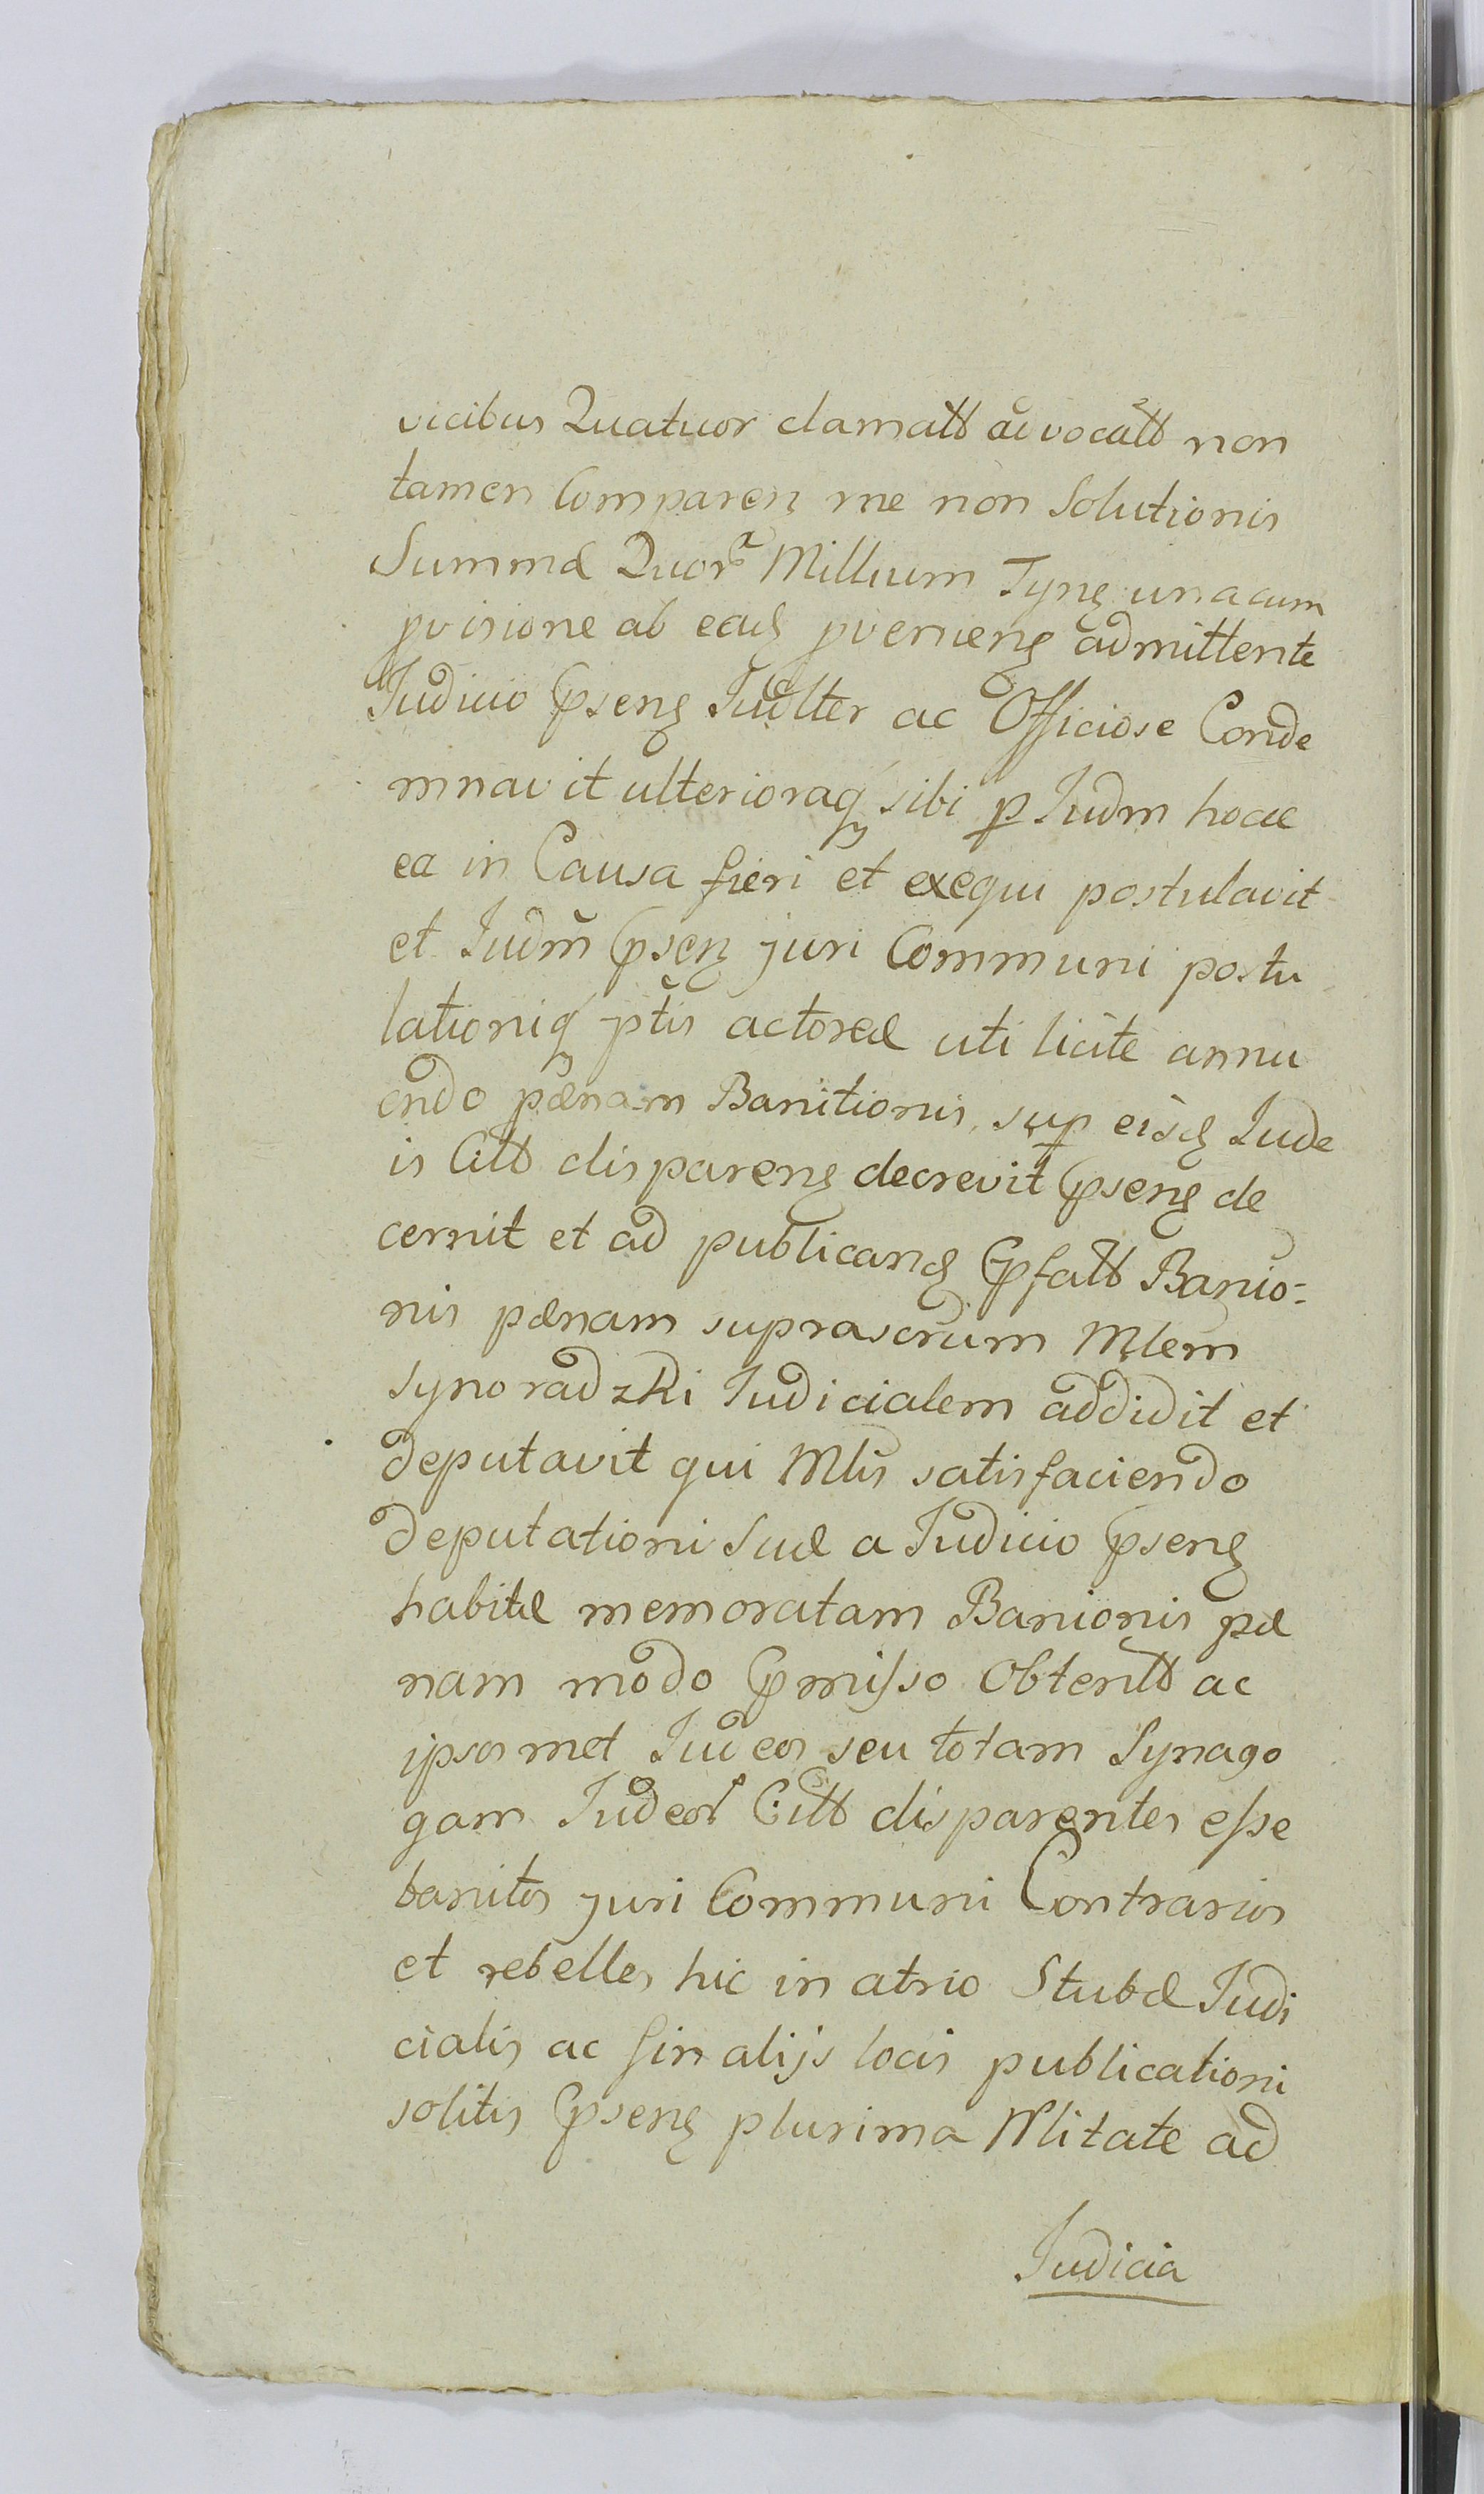 vicibus Quatuor clamatt ac vocatt non
tamen Comparen me non Solutionis
Summæ Quor Millium Tynę unacum
pvisione ab eadę pvenienę admittente
Judicio Ꝓsenę Judlter ac Officiose Conde
mnavit ulterioraqꝫ sibi ꝑ Judm hocce
ea in Causa fieri et exequi postulavit
et Judm̃ Ꝓsenę juri Communi postu
lationiqꝫ ptis actoreæ uti licite annu
endo pænam Banitionis supꝑ eisdę Jude
is Citt disparenę decrevit Ꝓsenę de
cernit et ad publicandę Ꝓfatt Banio=
nis pænam suprascrium Mlem
synoradzki Judicialem addidit et
deputavit qui Mlis satisfaciendo
deputationi Suæ a Judicio Ꝓsenę
habitæ memoratam Banionis pæ
nam modo Ꝓmisso Obtentt ac
ipsosmet Judeos seu totam Synago
gam Judeor Citt disparentes esse
banitos juri Communi Contrarios
et rebelles hic in atrio Stubæ Judi
cialis ac sin alijs locis publicationi
solitis Ꝓsenę plurima Nlitate ad
Judicia